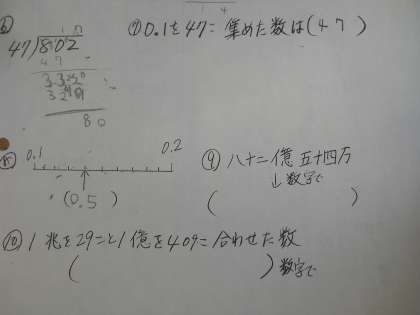 ⑦ 0.1を47こ 集めた数は(47)
47)802
47
80
0.1 0.2
(0.5)
⑨ 八十二億五十四万
↓数字で
( )
⑩ 1兆を29こと1億を409こ合わせた数
( )数字で